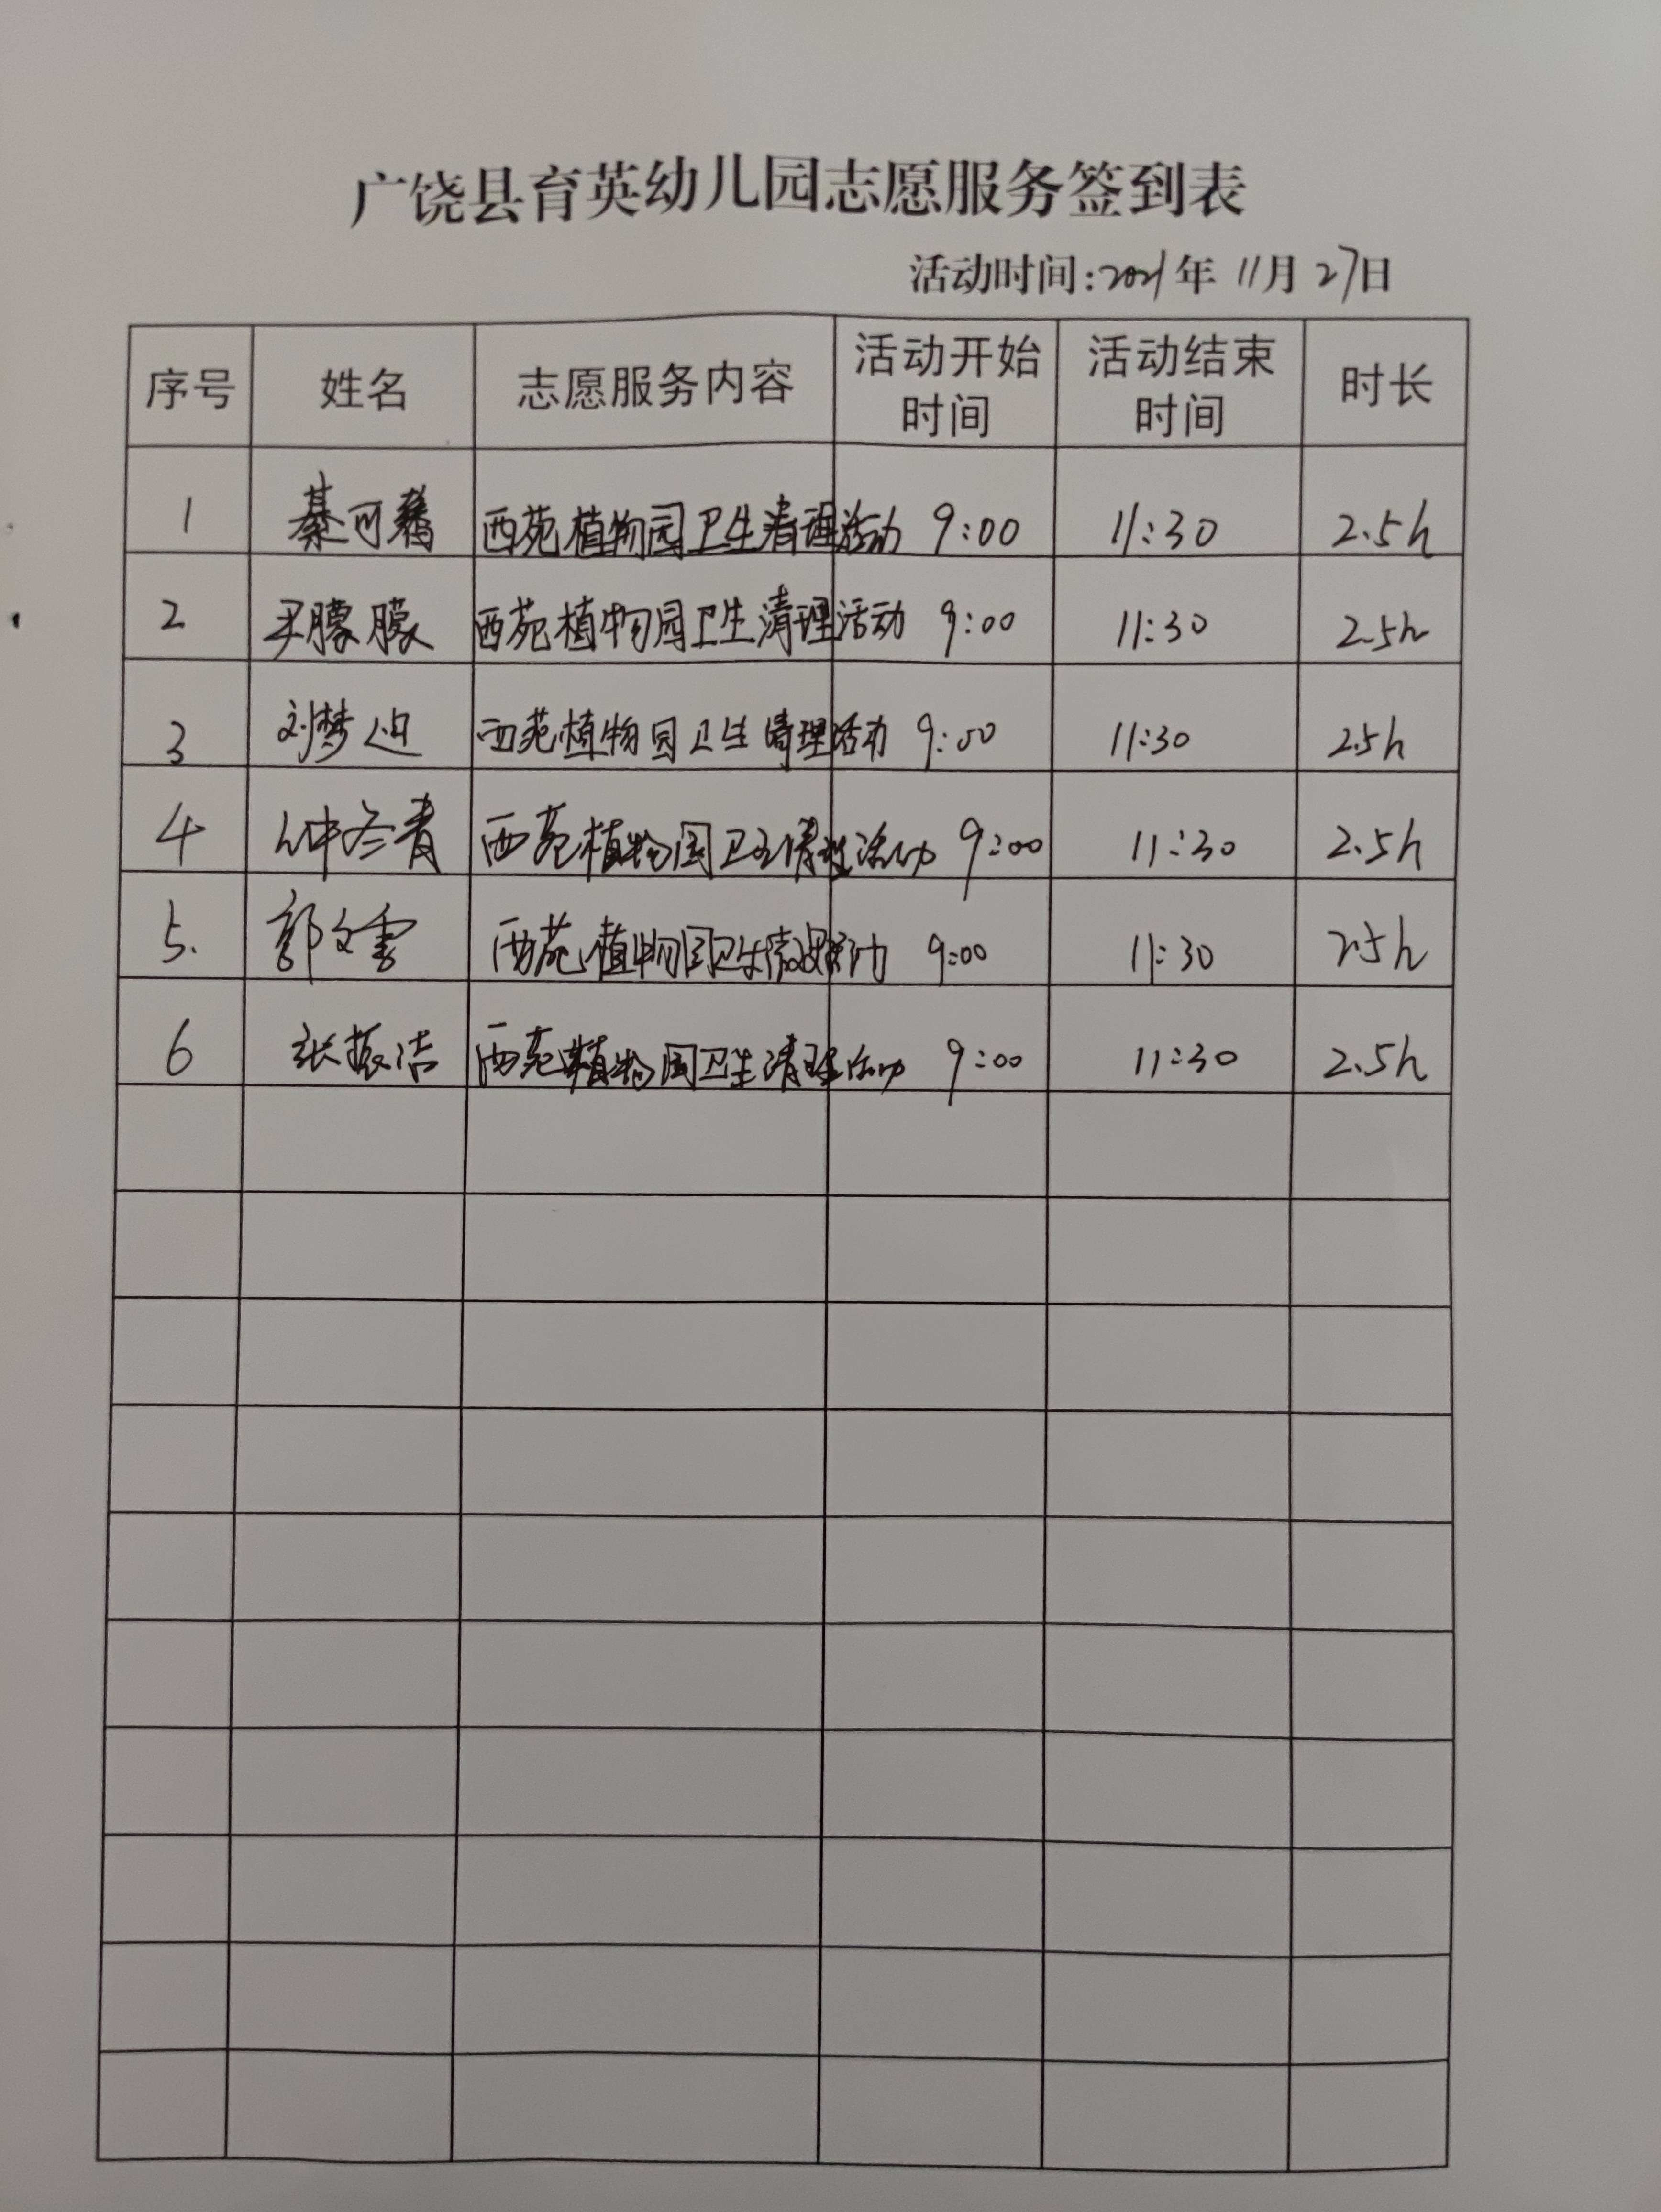 广饶县育英幼儿园志愿服务签到表
活动时间:2021年11月27日
序号 姓名 志愿服务内容 活动开始时间 活动结束时间 时长
1 綦可 西苑植物园卫生清理活动 9:00 11:30 2.5h
2 尹朦朦 西苑植物园卫生清理活动 9:00 11:30 2.5h
3 刘梦 西苑植物园卫生清理活动 9:00 11:30 2.5h
4 钟冬青 西苑植物园卫生清理活动 9:00 11:30 2.5h
5. 郭文雪 西苑植物园卫生活动 9:00 11:30 2.5h
6 张振洁 西苑植物园卫生清理活动 9:00 11:30 2.5h